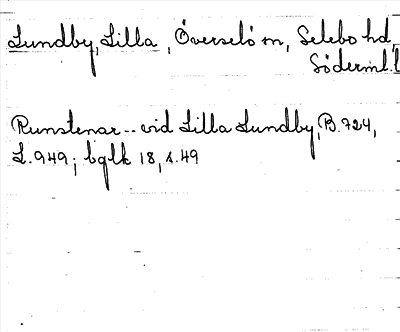 Lundby, Lilla, Överselö sn, Selebo hd,
Söderml. l
Runstenar -- vid Lilla Lundby, B. 724,
L. 949; bglk 18, s. 49